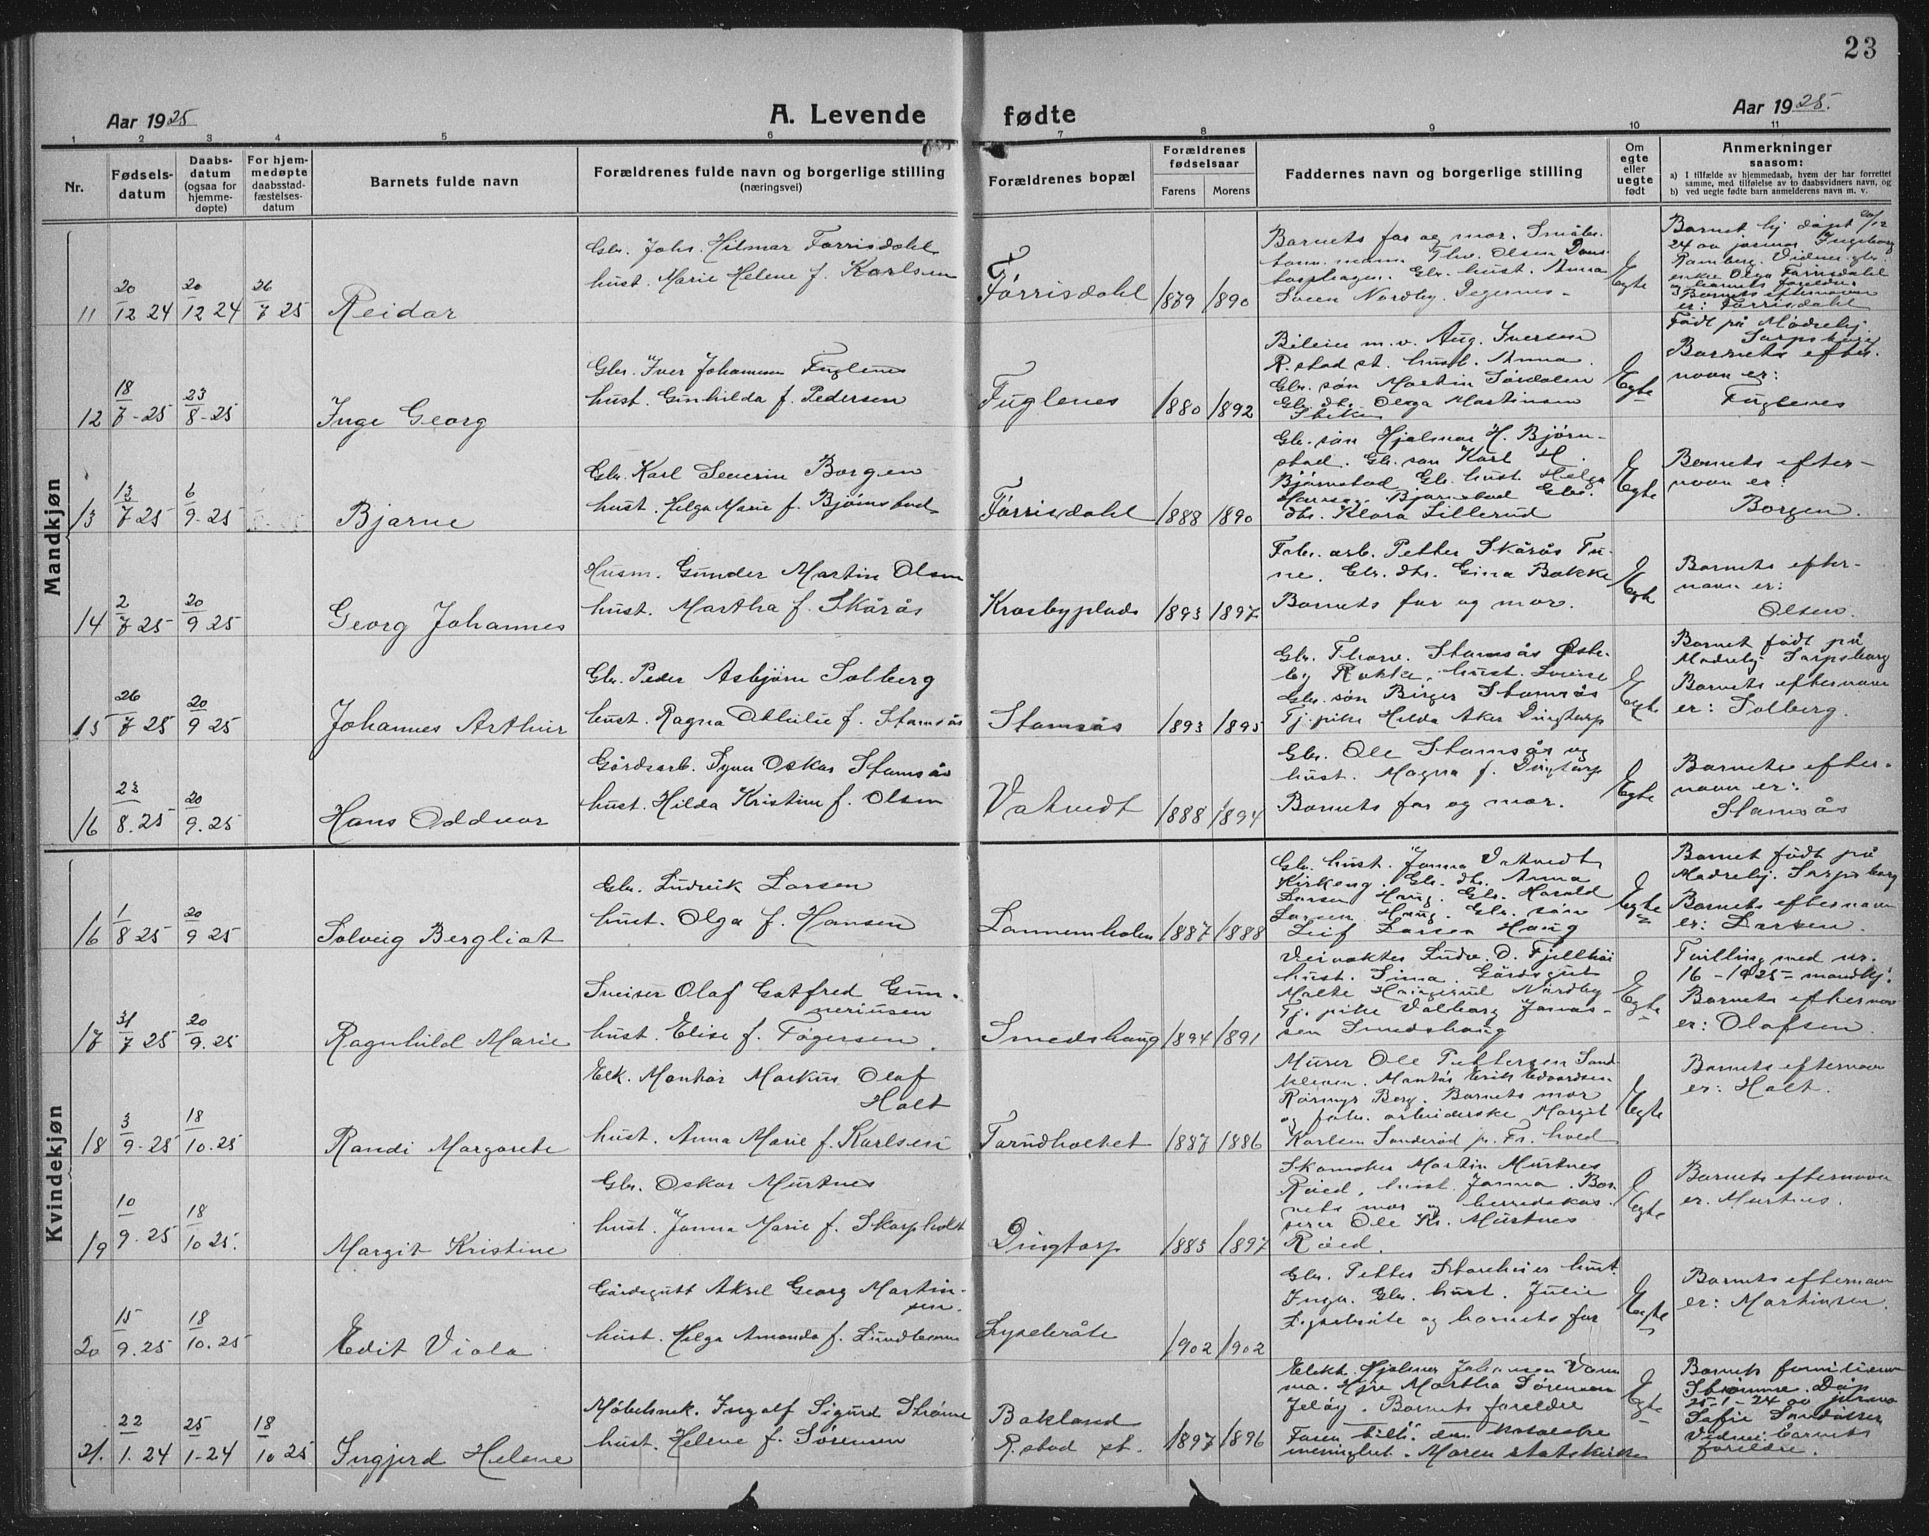 23
Aar 1925
A. Levende fødte
Aar 1925.
1 2 3 4 5 6 7 8 9 10 11
Nr.
Fødsels-
datum
Daabs-
datum
(ogsaa for
hjemme-
døpte)
For hjem-
medøpte
daabsstad-
fæstelses-
datum
Barnets fulde navn
Forældrenes fulde navn og borgerlige stilling
(næringsvei)
Forældrenes bopæl
Forældrenes
fødselsaar
Farens Morens
Faddernes navn og borgerlige stilling
Om
egte
eller
uegte
født
Anmerkninger
saasom:
a) I tilfælde av hjemmedaab, hvem der har forrettet
samme, med tilføielse av to daabsvidners navn, og
b) ved uegte fødte barn anmelderens navn m. v.
Mandkjøn
11
20/12 24
20/12 24
26/7 25
Reidar
Gbr. Johs. Hilmar Førrisdahl
hust. Marie Helene f. Karlsen
Førrisdahl
1879 1890
Barnets far og mor. Småbr.
Gbr. hust. Anna
Sveen Nordby. Degernes
Egte
Barnet hj. døpt 20/12
24 av jormor Ingeborg
Ramberg. Vidner: gbr.
enke Olga Førrisdahl
og barnets foreldre.
Barnets efternavn
er: Førrisdahl
12
18/7-25
23/8-25
Inge Georg
Gbr. Iver Johannesen Fuglenes
hust. Gunhilda f. Pedersen
Fuglenes
1880 1892
Bileier m.v. Aug. Iversen
R.stad st. hust. Anna.
Gbr. søn Martin Sørdalen
Gbr. dtr. Olga Martinsen
Egte
Født på Mødrehj.
Sarpsborg
Barnets efter-
navn er:
Fuglenes
13
13/7 25
6/9-25
Bjarne
Gbr. Karl Severin Borgen
hust. Helga Marie f. Bjørnstad
Førrisdahl
1888 1890
Gbr. søn Hjalmar H. Bjørn-
stad. Gbr. søn Karl H.
Bjørnstad Gbr. hust. Helga
Hansen Bjørnstad Gbr.
dtr. Klara Lillerud
Egte
Barnets efter-
navn er:
Borgen.
14
2/7 25
20/9 25
Georg Johannes
Husm. Gunder Martin Olsen
hust. Martha f. Skårås
Krosbyplads
1893 1897
Fabr. arb. Petter Skårås Tu-
ne. Gbr. dtr. Gina Bakke
Barnets far og mor.
Egte
Barnets efter-
navn er:
Olsen.
15
26/7 25
20/9 25
Johannes Arthur
Gbr. Peder Asbjørn Solberg
hust. Ragna Othilie f. Stamsås
Stamsås
1893 1895
Gbr. Thorv. Stamsås Øste-
by Rakke. hust. Lovise
Gbr. søn Birger Stamsås
Tj. pike Hilda Aker Dingtorp
Egte
Barnet født på
Mødrehj. Sarpsborg
Barnets efternavn
er: Solberg.
16
23/8.25
20/9.25
Hans Oddvar
Gårdsarb. Syver Oskar Stamsås
hust. Hilda Kristine f. Olsen
Vatvedt
1888 1894
Gbr. Ole Stamsås og
hust. Magna f. Dingtorp
Barnets far og mor.
Egte
Barnets efter-
navn er:
Stamsås
Kvindekjøn
16
1/8 25
20/9 25
Solveig Bergliot
Gbr. Ludvik Larsen
hust. Olga f. Hansen
Lannemholm
1887 1888
Gbr. hust. Janna Vatvedt
Kirkeng. Gbr. dtr. Anna
Larsen Haug. Gbr. Harald
Larsen Haug. Gbr. søn
Leif Larsen Haug
Egte
Barnet født på
Mødrehj. Sarpsborg
Barnets efternavn
er: Larsen.
17
31/7 25
20/9.25
Ragnhild Marie
Sveiser Olaf Gotfred Gun-
neriusen
hust. Elise f. Tøgersen.
Smedshaug
1894 1891
Veivokter Ludv. O. Fjellhøi
hust. Lima. Gårdsgut
Malte Haugerul Nordby
Tj. pike Valborg Jonas-
sen Smedshaug
Egte
Tvilling med nr.
16 - 1925 - mandkj.
Barnets efternavn
er: Olafsen.
18
3/9-25
18/10.25
Randi Margarete
Elk. Montør Markus Olaf
Holt
hust. Anna Marie f. Karlsen
Tarudholtet
1887 1886
Murer Ole Pettersen Sand-
kleven. Montør Erik Edvardsen
Berg. Barnets mor
og fabr. arbeiderske Margit
Karlsen Sanderød p. Fr. hald
Egte
Barnets efternavn
er: Holt.
19
10/9.25
18/10 25.
Margit Kristine
Gbr. Oskar Murtnes
hust. Janna Marie f. Skarpholt
Dingtorp
1885 1897
Skomaker Martin Murtnes
Røed, hust. Janna. Bar-
nets mor og herredskas-
serer Ole Kr. Murtnes
Røed.
Egte
Barnets efternavn
er. Murtnes.
20
15/9.25
18/10.25
Edit Viola
Gårdsgutt Aksel Georg Martin-
sen.
hust. Helga Amanda f. Lundteneie
Lyseleråte
1902 1902
Gbr. Petter Storeheier hust.
Inga. Gbr. hust. Julie
og barnets far
Egte
Barnets efternavn
er: Martinsen.
21.
22/1.24
25/1-24
18/10 25
Ingjerd Helene
Møbelsnek. Ingolf Sigurd Strømme
hust. Helene f. Sørensen
Bakland
R.stad st.
1897 1896
Elekt. Hjalmar Johansen Van-
Martha Sørensen
Jeløy. Barnets foreldre
Faren tilh. den katolske
menighet. Moren statskirken
Egte
Barnets familienavn
Strømme. Døp.
25-1-24 av jormor
Sofie Sandåsen
Vidner: barnets
foreldre.